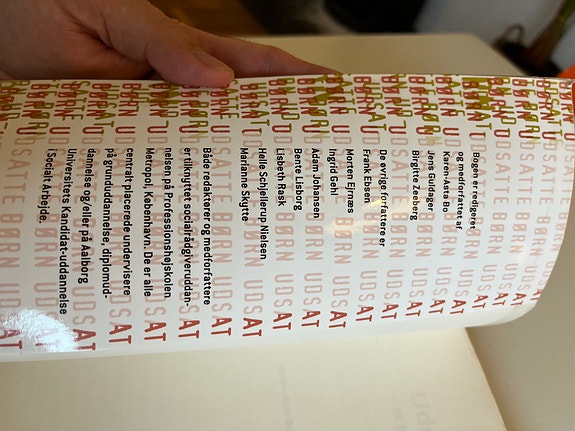 Bogen er redigeret
og medforfattet af
Karen-Asta Bo
Jens Guldager
Birgitte Zeeberg
De øvrige forfattere er
Frank Ebsen
Morten Ejrnæs
Ingrid Gehl
Adam Johansen
Bente Lisborg
Lisbeth Rask
Helle Schjellerup Nielsen
Marianne Skytte
Både redaktører og medforfattere
er tilknyttet socialrådgiveruddan-
nelsen på Professionshøjskolen
Metropol, København. De er alle
centralt placerede undervisere
på grunduddannelse, diplomud-
dannelse og/eller på Aalborg
Universitets Kandidat-uddannelse
i Socialt Arbejde.